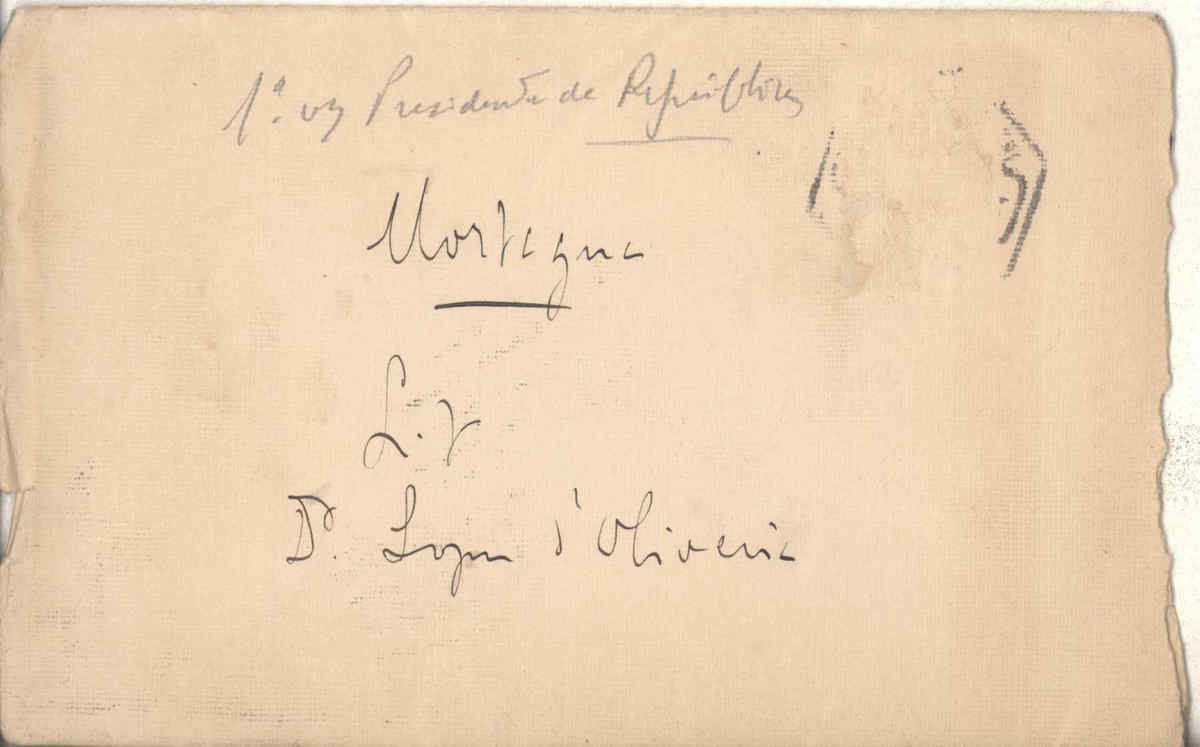 1ª. vez Presidente da República
Mortagua
Dr. Lopes d'Oliveira